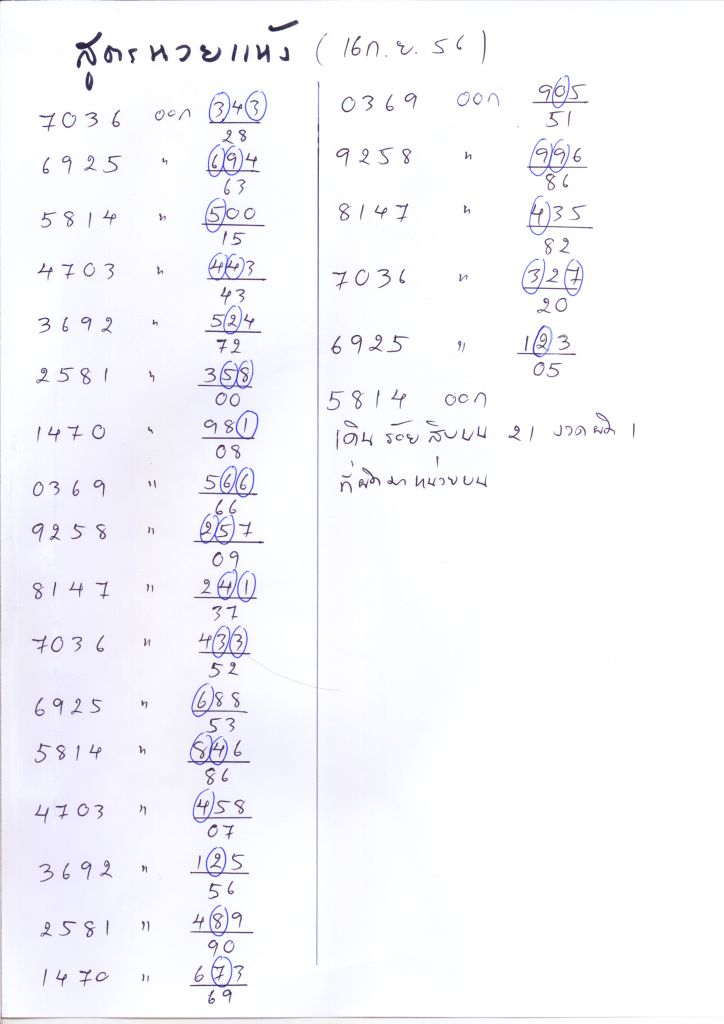 สูตรหวยแห้ว (16 ก.ย. 56)
7036 ออก 343
28
6925 " 694
63
5814 " 500
15
4703 " 443
43
3692 " 524
72
2581 " 358
00
1470 " 981
08
0369 " 566
66
9258 " 257
09
8147 " 241
37
7036 " 433
52
6925 " 688
53
5814 " 846
86
4703 " 458
07
3692 " 125
56
2581 " 489
90
1470 " 673
69
0369 ออก 905
51
9258 " 996
86
8147 " 435
82
7036 " 327
20
6925 " 123
05
5814 ออก
เดิน ร้อย สิบบน 21 งวดผิด 1
ที่ผิดมาหน่วยบน